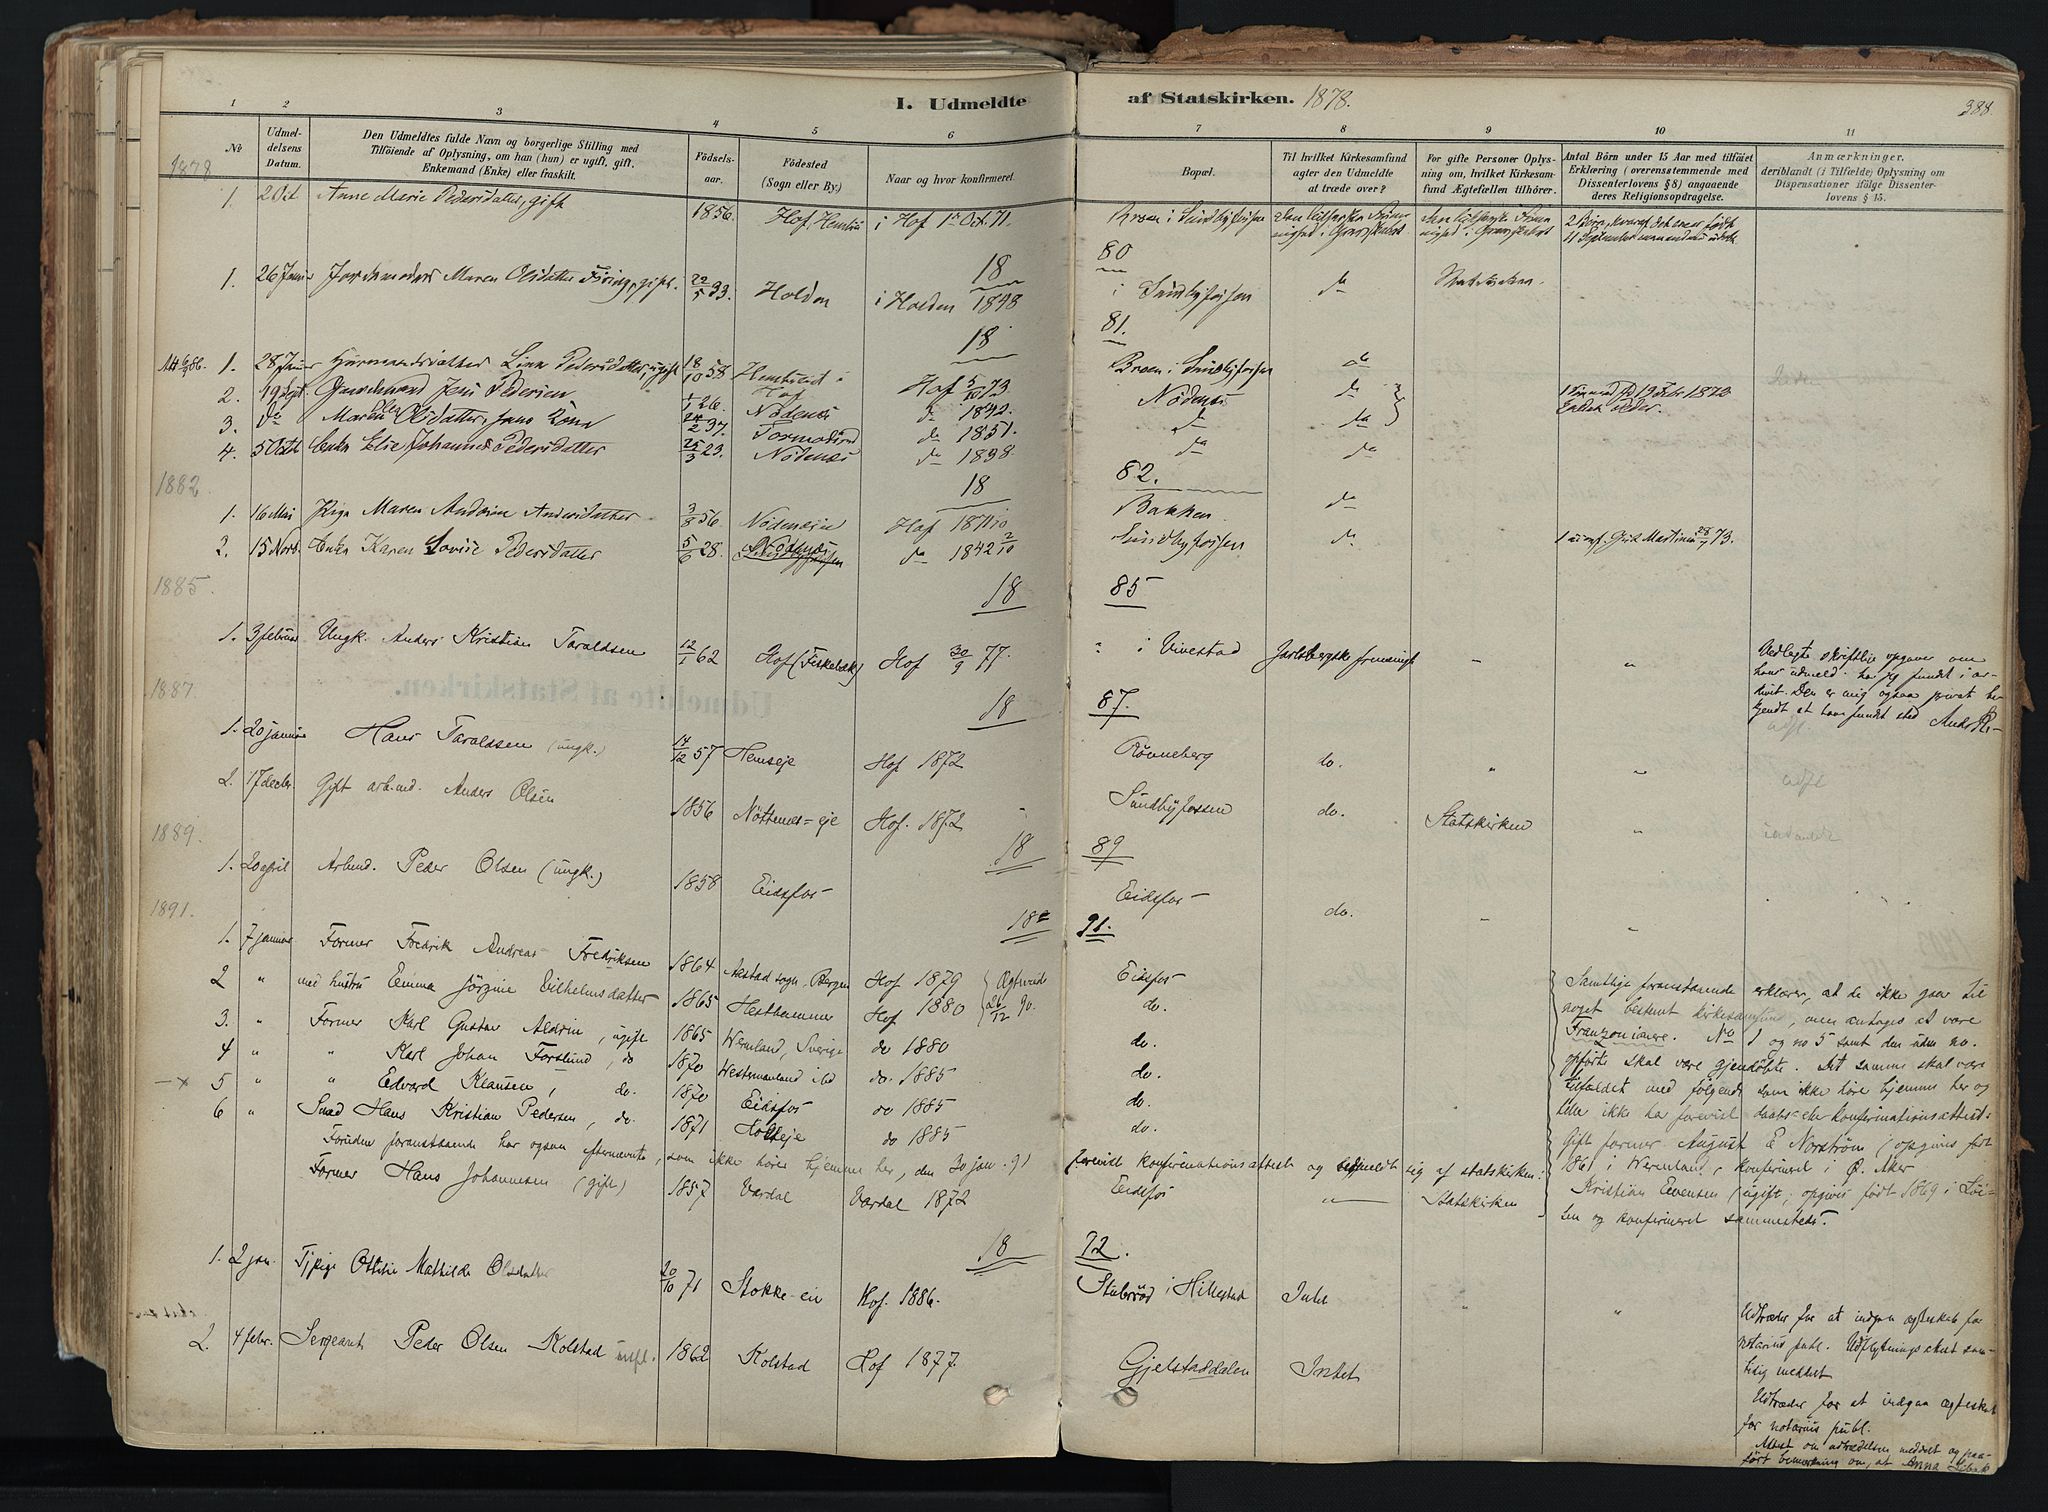 I. Udmeldte af Statskirken. 1878.
388.
1 2 3 4 5 6 7 8 9 10 11
№
Udmeldelsens Datum.
Den Udmeldtes fulde Navn og borgerlige Stilling med
Tilföiende af Oplysning, om han (hun) er ugift, gift,
Enkemand (Enke) eller fraskilt.
Födselsaar.
Födested
(Sogn eller By.)
Naar og hvor konfirmeret.
Bopæl.
Til hvilket Kirkesamfund
agter den Udmeldte
at træde over?
For gifte Personer Oplysning
om, hvilket Kirkesamfund
Ægtefællen tilhörer.
Antal Börn under 15 Aar med tilföiet
Erklæring (overensstemmende med
Dissenterlovens § 8) angaaende
deres Religionsopdragelse.
Anmærkninger,
deriblandt (i Tilfælde) Oplysning om
Dispensationer ifölge Dissenterlovens
§ 15.
1878
1. 2 Oct Anne Marie Pedersdatter, gift 1856. Hof, i Hof 1ste Oct. 71. Broen i Sundbyfossen
18 80
1. 26 Januar Jordemoder Maren Olsdatter gift. 22/5 33. Holden i Holden 1848 i Sundbyfossen do Statskirken.
18 81.
1. 28 Januar Lina Pedersdatter, ugift 18/10 58 i Hof Hof 5/10 73 Broen i Sundbyfossen do
2. 19 Sept. Gaardmand Jens Pedersen 1/1 26. Nödenæs do 1842. Nödenæs do
3. do Maren Olsdatter, hans Kone 24/2 37. do 1851. do do
4. 5 Octb Enke Else Johanne Pedersdatter 25/3 23. Nödenæs do 1838 do do
1882.
18 82.
1. 16 Mai Pige Maren Andrine Andersdatter 3/8 56 Nödenæseie Hof 1871 Bakken. do
2. 15 Novb. Enke Karen Lovise Pedersdatter 5/6 28. Nödenæs do 1842 2/10 Sundbyfossen do
1885.
18 85
1. 3 februar Ungk. Anders Kristian Taraldsen 12/1 62 Hof (Fiskebæk) Hof 30/9 77. " i Vivestad Jarlsbergske frimenigh. " "
Vedlagte skriftlige opgave om
hans udmeld. har jeg fundet i arkivet.
Den er mig ogsaa privat bekjendt
at have fundet sted
1887.
18 87.
1. 20 januar Hans Taraldsen (ungk.) 14/12 57 Hemseje Hof 1872 Rönneberg do. " "
2. 17 decbr. Gift arb.md. Anders Olsen 1856 Nöttenes=eje Hof. 1872 Sundbyfossen do. Statskirken "
1889.
18 89
1. 20 april Arbmd. Peder Olsen (ungk.) 1858 Eidsfos Eidsfos do. " "
1891.
18 91.
1. 7 januar Former Fredrik Andreas Fredriksen 1864 sogn, Bergen Hof 1879 Eidsfos
2 " med hustru Emma Jörgine Vilhelmsdatter 1865 Hesthammer Hof 1880 26/12 90. do.
3. " Former Karl Gustav Aldrin, ugift 1865 Wermland, Sverige do 1880 do.
4 " " Karl Johan Forslund, do 1870 Westmanland ibd do. 1885 do.
5 " " Edvard Klausen, do. 1870 Eidsfos do 1885 do.
6 " Smed Hans Kristian Pedersen, do. 1871 do 1885 do.
Foruden foranstaaende har ogsaa efternævnte, som ikke hörer hjemme her, den 30 jan. 91 forevist konfirmationsattest og udmeldt sig af statskirken:
Former Hans Johannesen (gift) 1857 Vardal Vardal 1872 Eidsfos " Statskirken
Samtlige foranstaaende erklærer, at de ikke gaar til
noget bestemt kirkesamfund, men antages at være
Franzonianere. No 1 og no 5 samt den uden no.
opförte skal være gjendöbte. Det samme skal være
tilfældet med fölgende som ikke höre hjemme her og
heller ikke har forevist daabs- eller konfirmationsattest:
Gift former August E Norström (opgives födt
1861 i Wermland, konfirmeret i Ö. Aker
Kristian Evensen (ugift; opgives födt 1869 i Löiten
og konfirmeret sammesteds.
18 92.
1. 2 jan. Tj.pige Ottilie Mathilde Olsdatter 20/10 71 Stokke-eie Hof. 1886. Stubröd i Hillestad Intet " "
Udtræder for at indgaa ægteskab for
notarius publ. Udflytningsattest samtidig
meddelt
2. 4 febr. Sergeant Peder Olsen Kolstad 1862 Kolstad Hof 1877. Gjelstaddalen Intet
Udtræder for at indgaa ægteskab
for notarius publ.
Attest om udtrædelsen meddelt og paafört
bemerkning om, at Anna